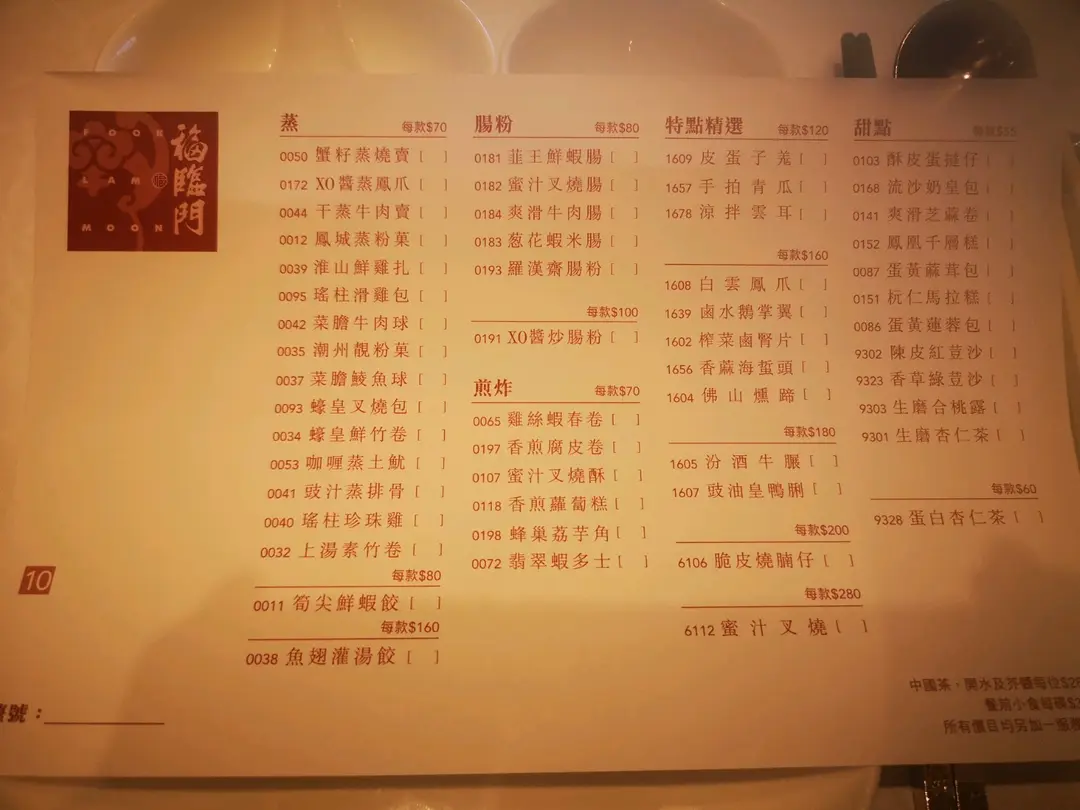 FOOK
LAM
MOON
福臨門
蒸 每款$70
0050 蟹籽蒸燒賣 [ ]
0172 XO醬蒸鳳爪 [ ]
0044 干蒸牛肉賣 [ ]
0012 鳳城蒸粉菓 [ ]
0039 淮山鮮雞扎 [ ]
0095 瑤柱滑雞包 [ ]
0042 菜膽牛肉球 [ ]
0035 潮州靚粉菓 [ ]
0037 菜膽鯪魚球 [ ]
0093 蠔皇叉燒包 [ ]
0034 蠔皇鮮竹卷 [ ]
0053 咖喱蒸土魷 [ ]
0041 豉汁蒸排骨 [ ]
0040 瑤柱珍珠雞 [ ]
0032 上湯素竹卷 [ ]
每款$80
0011 筍尖鮮蝦餃 [ ]
每款$160
0038 魚翅灌湯餃 [ ]
腸粉 每款$80
0181 韮王鮮蝦腸 [ ]
0182 蜜汁叉燒腸 [ ]
0184 爽滑牛肉腸 [ ]
0183 葱花蝦米腸 [ ]
0193 羅漢齋腸粉 [ ]
每款$100
0191 XO醬炒腸粉 [ ]
煎炸 每款$70
0065 雞絲蝦春卷 [ ]
0197 香煎腐皮卷 [ ]
0107 蜜汁叉燒酥 [ ]
0118 香煎蘿蔔糕 [ ]
0198 蜂巢荔芋角 [ ]
0072 翡翠蝦多士 [ ]
特點精選 每款$120
1609 皮蛋子羌 [ ]
1657 手拍青瓜 [ ]
1678 涼拌雲耳 [ ]
每款$160
1608 白雲鳳爪 [ ]
1639 鹵水鵝掌翼 [ ]
1602 榨菜鹵腎片 [ ]
1656 香蔴海蜇頭 [ ]
1604 佛山燻蹄 [ ]
每款$180
1605 汾酒牛𦟌 [ ]
1607 豉油皇鴨脷 [ ]
每款$200
6106 脆皮燒腩仔 [ ]
每款$280
6112 蜜汁叉燒 [ ]
甜點 每款$55
0103 酥皮蛋撻仔 [ ]
0168 流沙奶皇包 [ ]
0141 爽滑芝蔴卷 [ ]
0152 鳳凰千層糕 [ ]
0087 蛋黃蔴茸包 [ ]
0151 杬仁馬拉糕 [ ]
0086 蛋黃蓮蓉包 [ ]
9302 陳皮紅荳沙 [ ]
9323 香草綠荳沙 [ ]
9303 生磨合桃露 [ ]
9301 生磨杏仁茶 [ ]
每款$60
9328 蛋白杏仁茶 [ ]
10
號：
中國茶、開水及芥醬每位$2
餐前小食每碟$
所有價目均另加一